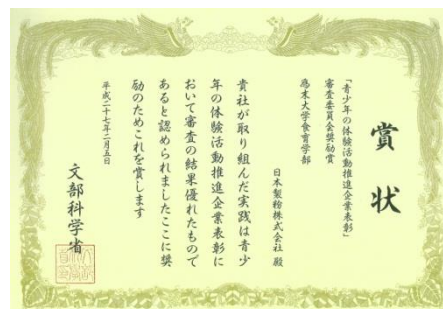 賞状
「青少年の体験活動推進企業表彰」
審査委員会奨励賞
大学食育学部
日本製粉株式会社 殿
貴社が取り組んだ実践は青少
年の体験活動推進企業表彰に
おいて審査の結果優れたもので
あると認められましたここに奨
励のためこれを賞します
平成二十七年二月五日
文部科学省